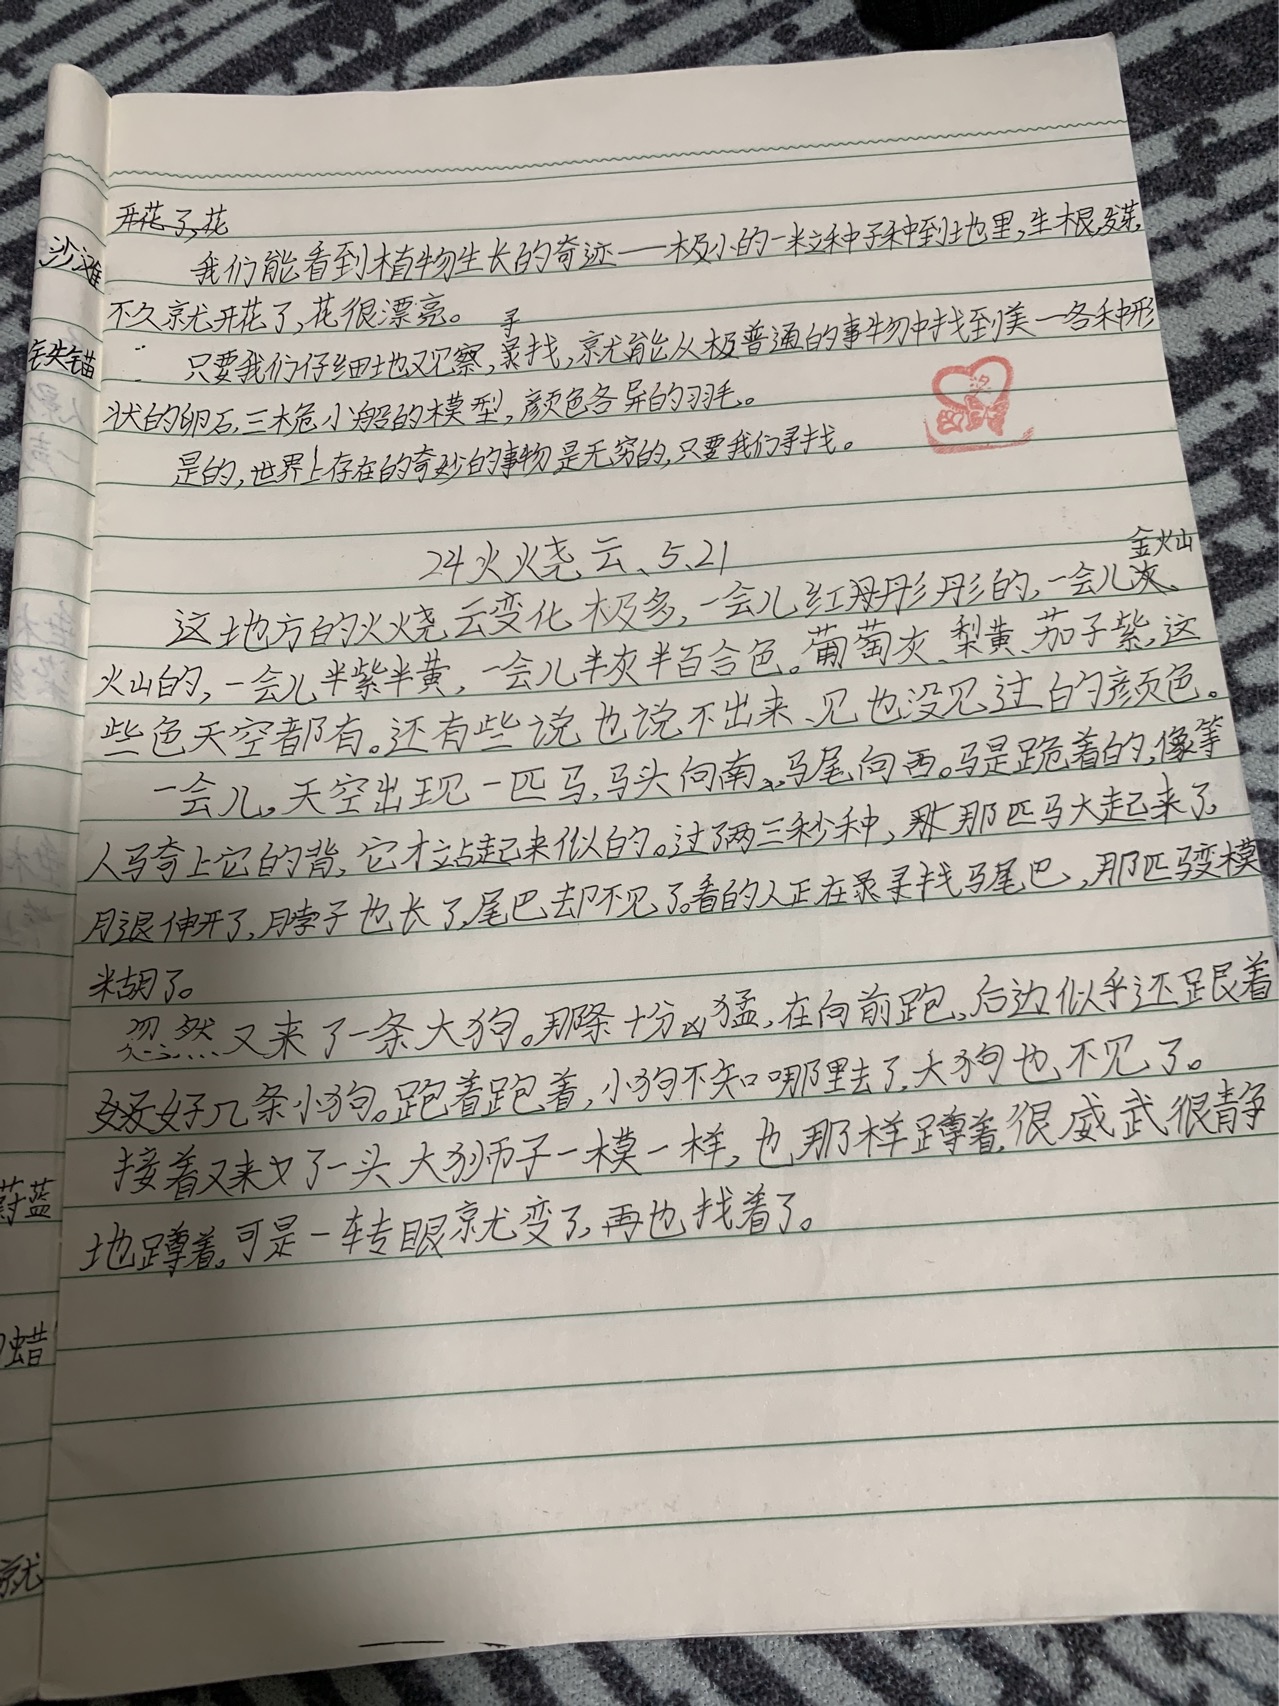 开花了,花
沙滩
我们能看到植物生长的奇迹——极小的一粒种子种到地里,生根,发芽,
不久就开花了,花很漂亮。
寻
铁锚
只要我们仔细地观察,寻找,就能从极普通的事物中找到美一各种形
状的卵石,三桅小船的模型,颜色各异的羽毛。
是的,世界上存在的奇妙的事物是无穷的,只要我们寻找。
24火烧云、5.21
金火山
这地方的火烧云变化极多,一会儿红彤彤的,一会儿
火山的,一会儿半紫半黄,一会儿半灰半百合色。葡萄灰、梨黄、茄子紫,这
些色天空都有。还有些说也说不出来、见也没见过的颜色。
一会儿,天空出现一匹马,马头向南,马尾向西。马是跪着的,像等
人马奇上它的背,它才立站起来似的。过了两三秒种,那匹马大起来了
腿伸开了,脖子也长了,尾巴却不见了。看的人正在寻找马尾巴,那匹马变模
糊了。
忽然又来了一条大狗。那条十分凶猛,在向前跑,后边似乎还跟着
好几条小狗。跑着跑着,小狗不知哪里去了,大狗也不见了。
接着又来了一头大狮子一模一样,也那样蹲着,很威武很静
地蹲着。可是一转眼就变了,再也找着了。
蔚蓝
蜡
就